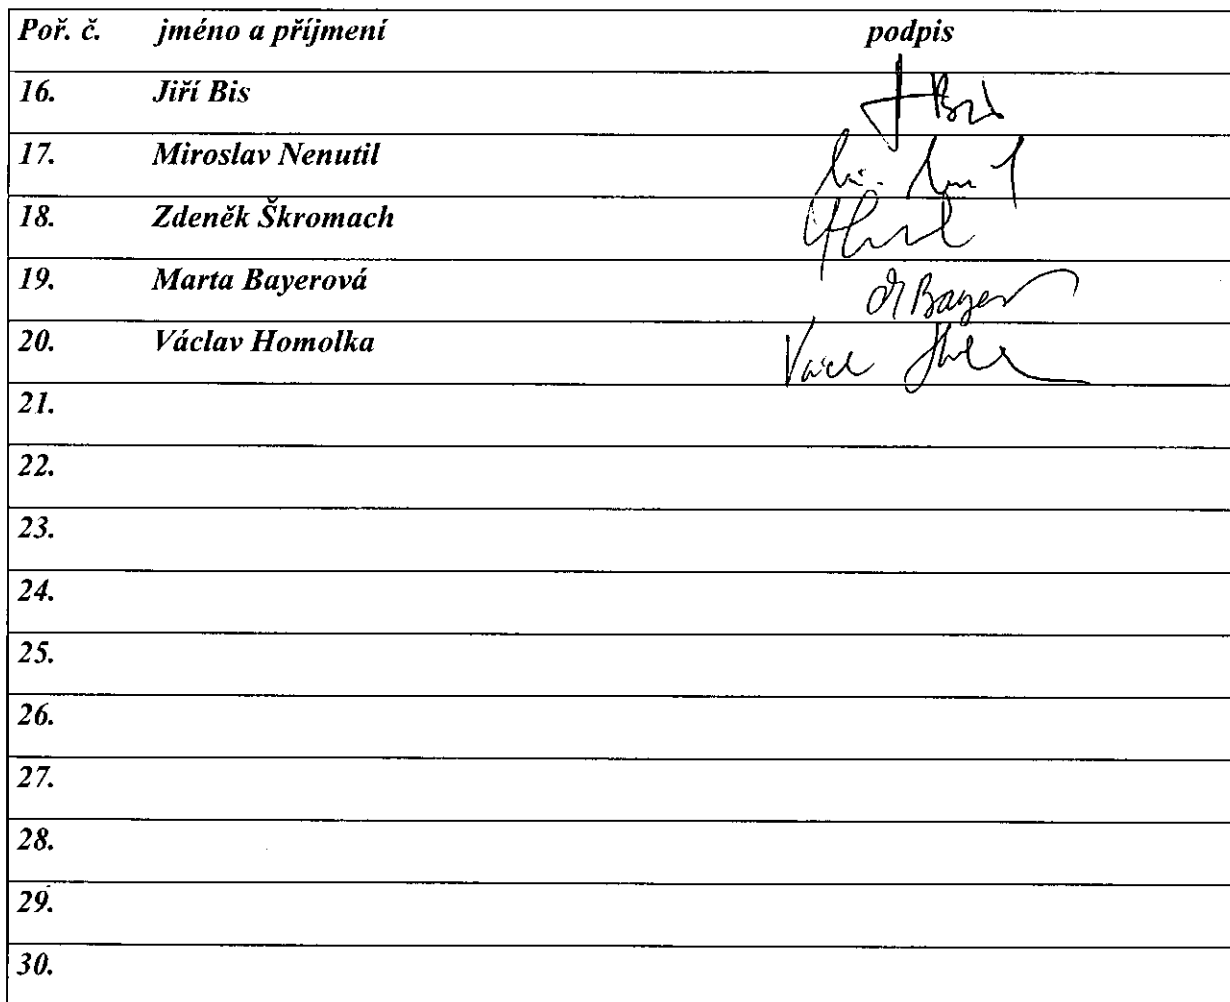 Poř. č. jméno a příjmení podpis
16. Jiří Bis
17. Miroslav Nenutil
18. Zdeněk Škromach
19. Marta Bayerová
20. Václav Homolka
21.
22.
23.
24.
25.
26.
27.
28.
29.
30.